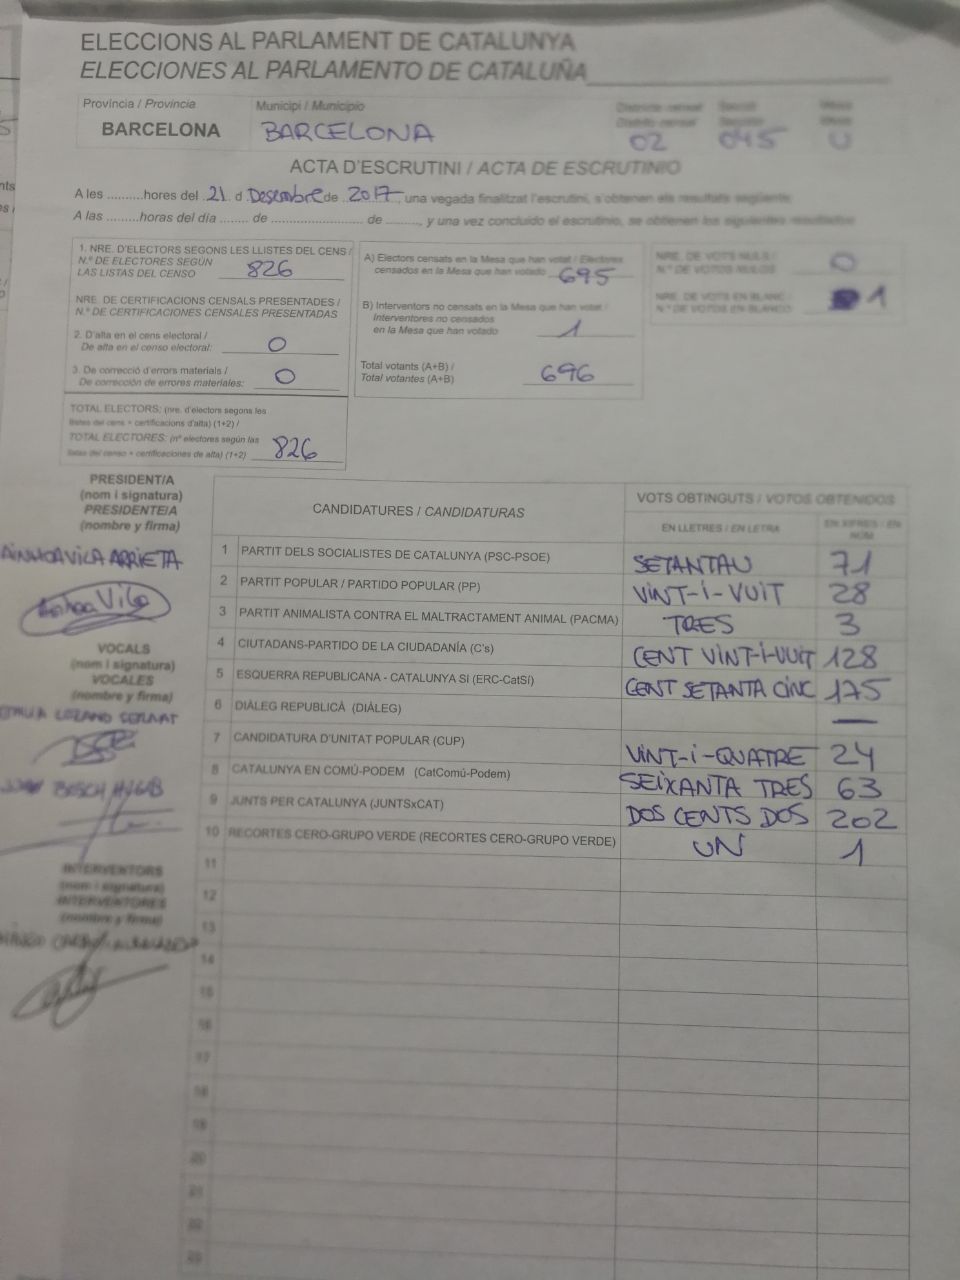 ELECCIONS AL PARLAMENT DE CATALUNYA
ELECCIONES AL PARLAMENTO DE CATALUÑA
Província / Provincia
Municipi / Municipio
Districte censal
Distrito censal
Secció
Sección
Mesa
Mesa
BARCELONA
BARCELONA
02
045
U
ACTA D'ESCRUTINI / ACTA DE ESCRUTINIO
A les ..........hores del 21 d Desembre de 2017, una vegada finalitzat l'escrutini, s'obtenen els resultats següents:
A las .........horas del día ........ de ......................... de .........., y una vez concluido el escrutinio, se obtienen los siguientes resultados:
1. NRE. D'ELECTORS SEGONS LES LLISTES DEL CENS /
N.º DE ELECTORES SEGÚN
LAS LISTAS DEL CENSO
826
NRE. DE CERTIFICACIONS CENSALS PRESENTADES /
N.º DE CERTIFICACIONES CENSALES PRESENTADAS
2. D'alta en el cens electoral /
De alta en el censo electoral:
0
3. De correcció d'errors materials /
De corrección de errores materiales:
0
TOTAL ELECTORS: (nre. d'electors segons les
llistes del cens + certificacions d'alta) (1+2) /
TOTAL ELECTORES: (nº electores según las
listas del censo + certificaciones de alta) (1+2)
826
A) Electors censats en la Mesa que han votat / Electores
censados en la Mesa que han votado
695
B) Interventors no censats en la Mesa que han votat /
Interventores no censados
en la Mesa que han votado
1
Total votants (A+B) /
Total votantes (A+B)
696
NRE. DE VOTS NULS /
N.º DE VOTOS NULOS
0
NRE. DE VOTS EN BLANC /
N.º DE VOTOS EN BLANCO
1
PRESIDENT/A
(nom i signatura)
PRESIDENTE/A
(nombre y firma)
AINHOA VILA ARRIETA
Ainhoa Vila
VOCALS
(nom i signatura)
VOCALES
(nombre y firma)
LOZANO
JOAN BOSCH
INTERVENTORS
(nom i signatura)
INTERVENTORES
(nombre y firma)
CANDIDATURES / CANDIDATURAS
VOTS OBTINGUTS / VOTOS OBTENIDOS
EN LLETRES / EN LETRA
EN XIFRES / EN NÚM.
1 PARTIT DELS SOCIALISTES DE CATALUNYA (PSC-PSOE) SETANTAU 71
2 PARTIT POPULAR / PARTIDO POPULAR (PP) VINT-I-VUIT 28
3 PARTIT ANIMALISTA CONTRA EL MALTRACTAMENT ANIMAL (PACMA) TRES 3
4 CIUTADANS-PARTIDO DE LA CIUDADANÍA (C's) CENT VINT-I-VUIT 128
5 ESQUERRA REPUBLICANA - CATALUNYA SÍ (ERC-CatSí) CENT SETANTA CINC 175
6 DIÀLEG REPUBLICÀ (DIÀLEG) —
7 CANDIDATURA D'UNITAT POPULAR (CUP) VINT-I-QUATRE 24
8 CATALUNYA EN COMÚ-PODEM (CatComú-Podem) SEIXANTA TRES 63
9 JUNTS PER CATALUNYA (JUNTSxCAT) DOS CENTS DOS 202
10 RECORTES CERO-GRUPO VERDE (RECORTES CERO-GRUPO VERDE) UN 1
11
12
13
14
15
16
17
18
19
20
21
22
23